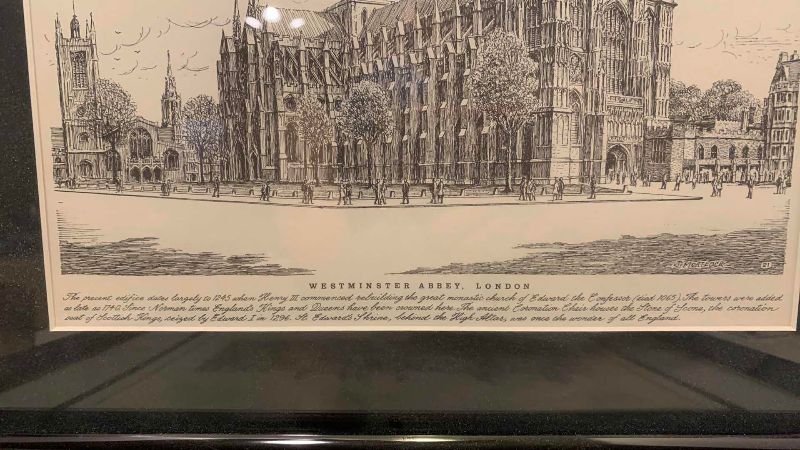 WESTMINSTER ABBEY, LONDON
The present edifice dates largely to 1245 when Henry III commenced rebuilding the great monastic church of Edward the Confessor (died 1065). The towers were added
as late as 1740. Since Norman times England's Kings and Queens have been crowned here. The ancient Coronation Chair houses the Stone of Scone, the coronation
seat of Scottish Kings, seized by Edward I in 1296. St. Edward's Shrine, behind the High Altar, was once the wonder of all England.